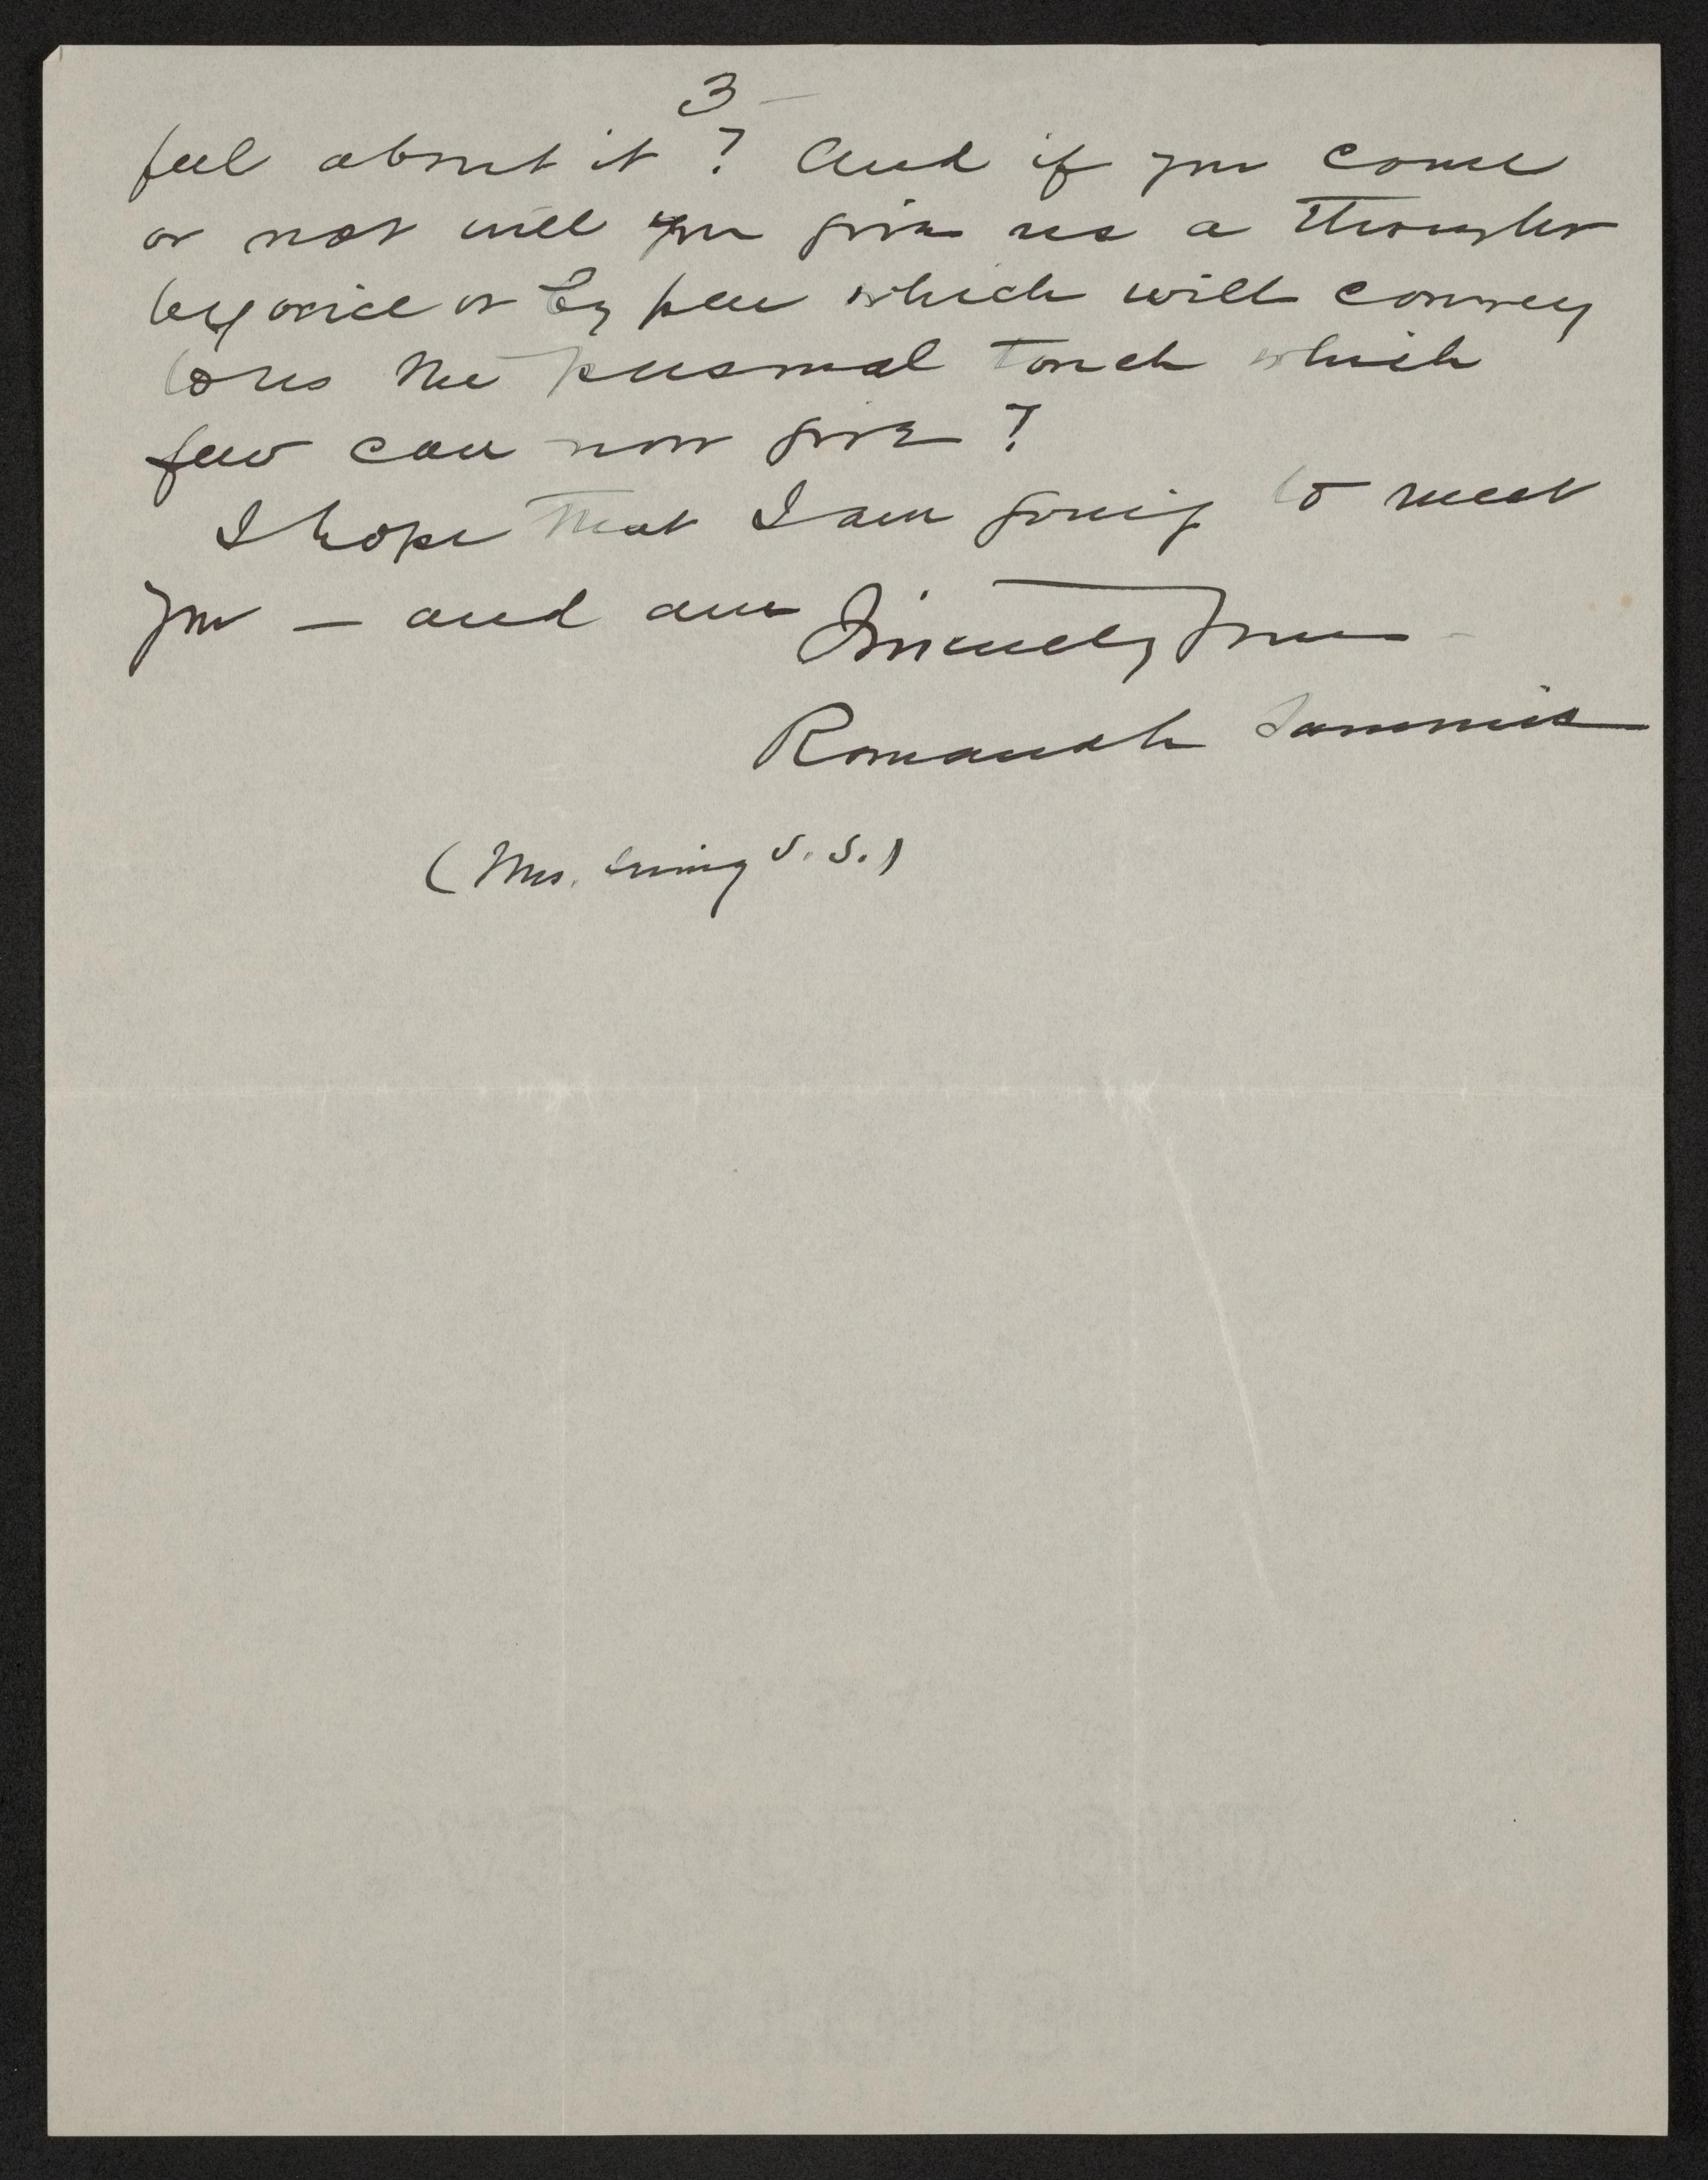 3 -
feel about it? And if you come
or not will you give us a thought
by voice or by pen which will convey
to us the personal touch which
few can now give?
I hope that I am going to meet
you — and am Sincerely yours
Romanah Sammis
(Mrs. Irving S. S.)